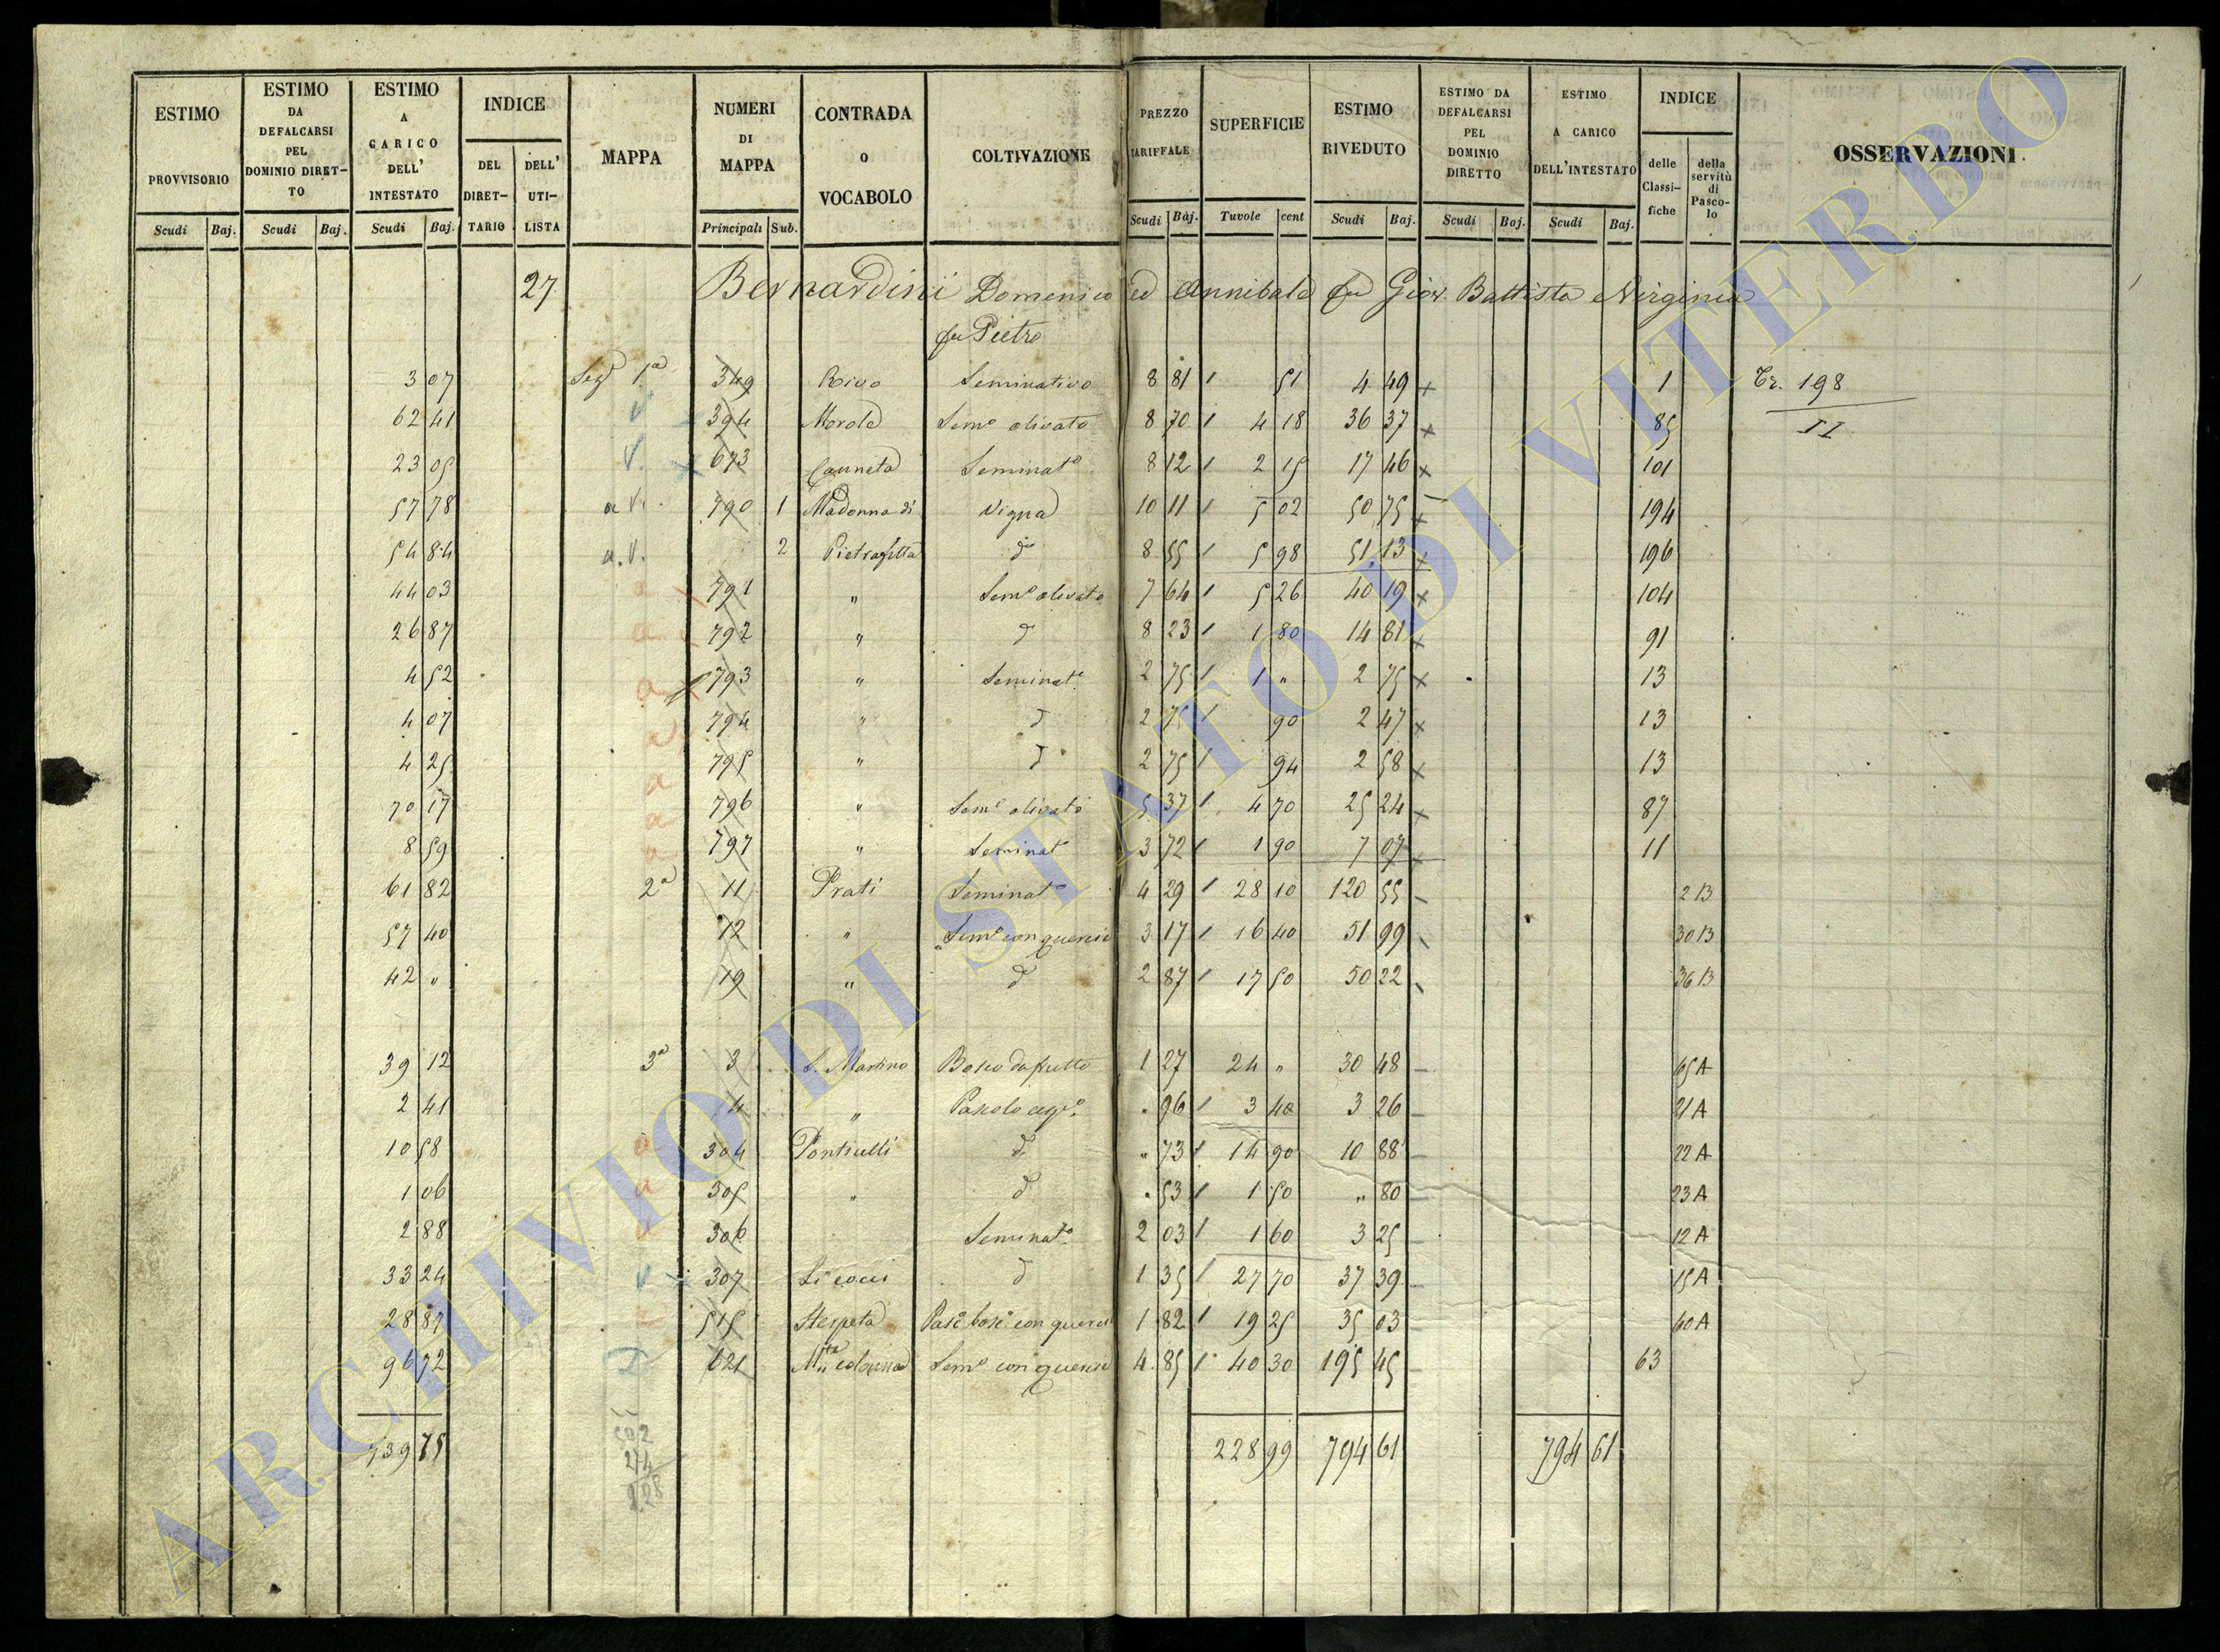 ESTIMO PROVVISORIO Scudi Baj.
ESTIMO DA DEFALCARSI PEL DOMINIO DIRET-TO Scudi Baj.
ESTIMO A CARICO DELL' INTESTATO Scudi Baj.
INDICE DEL DIRET-TARIO DELL' UTI-LISTA
MAPPA
NUMERI DI MAPPA Principali Sub.
CONTRADA O VOCABOLO
COLTIVAZIONE
PREZZO TARIFFALE Scudi Baj.
SUPERFICIE Tavole cent
ESTIMO RIVEDUTO Scudi Baj.
ESTIMO DA DEFALCARSI PEL DOMINIO DIRETTO Scudi Baj.
ESTIMO A CARICO DELL'INTESTATO Scudi Baj.
INDICE delle Classi-fiche della servitù di Pasco-lo
OSSERVAZIONI.
27 Bernardini Domenico ed Annibale fu Giov. Battista e Virginia
fu Pietro
3 07 Sez 1a 349 Rivo Seminativo 8 81 51 4 49 1 Tr. 198
62 41 V 394 Merole Semo olivato 8 70 4 18 36 37 85 II
23 05 V. 673 Canneta Seminato 8 12 2 15 17 46 101
57 78 a V. 790 1 Madonna di Vigna 10 11 5 02 50 75 194
54 84 a.V. 2 Pietrafitta do 8 55 5 98 51 13 196
44 03 a 791 " Semo olivato 7 64 5 26 40 19 104
26 87 a 792 " d 8 23 1 80 14 81 91
4 52 a 793 " Seminato 2 75 1 " 2 75 13
4 07 a 794 " d 2 75 90 2 47 13
4 25 a 795 " d 2 75 94 2 58 13
70 17 a 796 " Semo olivato 5 37 4 70 25 24 87
8 59 a 797 " Seminat 3 72 1 90 7 07 11
61 82 2a 11 Prati Seminato 4 29 28 10 120 55 2 B
57 40 12 " Semo con quercie 3 17 16 40 51 99 30 B
42 " 19 " d 2 87 17 50 50 22 36 B
39 12 3a 3 S. Martino Bosco da frutto 1 27 24 " 30 48 65 A
2 41 4 " Pascolo cesp. " 96 3 40 3 26 21 A
10 58 a 304 Ponticelli d " 73 14 90 10 88 22 A
1 06 a 305 " d " 53 1 50 " 80 23 A
2 88 a 306 Seminato 2 03 1 60 3 25 12 A
33 24 V 307 d 1 35 27 70 37 39 15 A
28 87 515 Sterpeta Pasc. bosc. con querci 1 82 19 25 35 03 60 A
96 72 D 621 Semo con quercie 4 85 40 30 195 45 63
739 75 228 99 794 61 794 61
502
274
228
ARCHIVIO DI STATO DI VITERBO